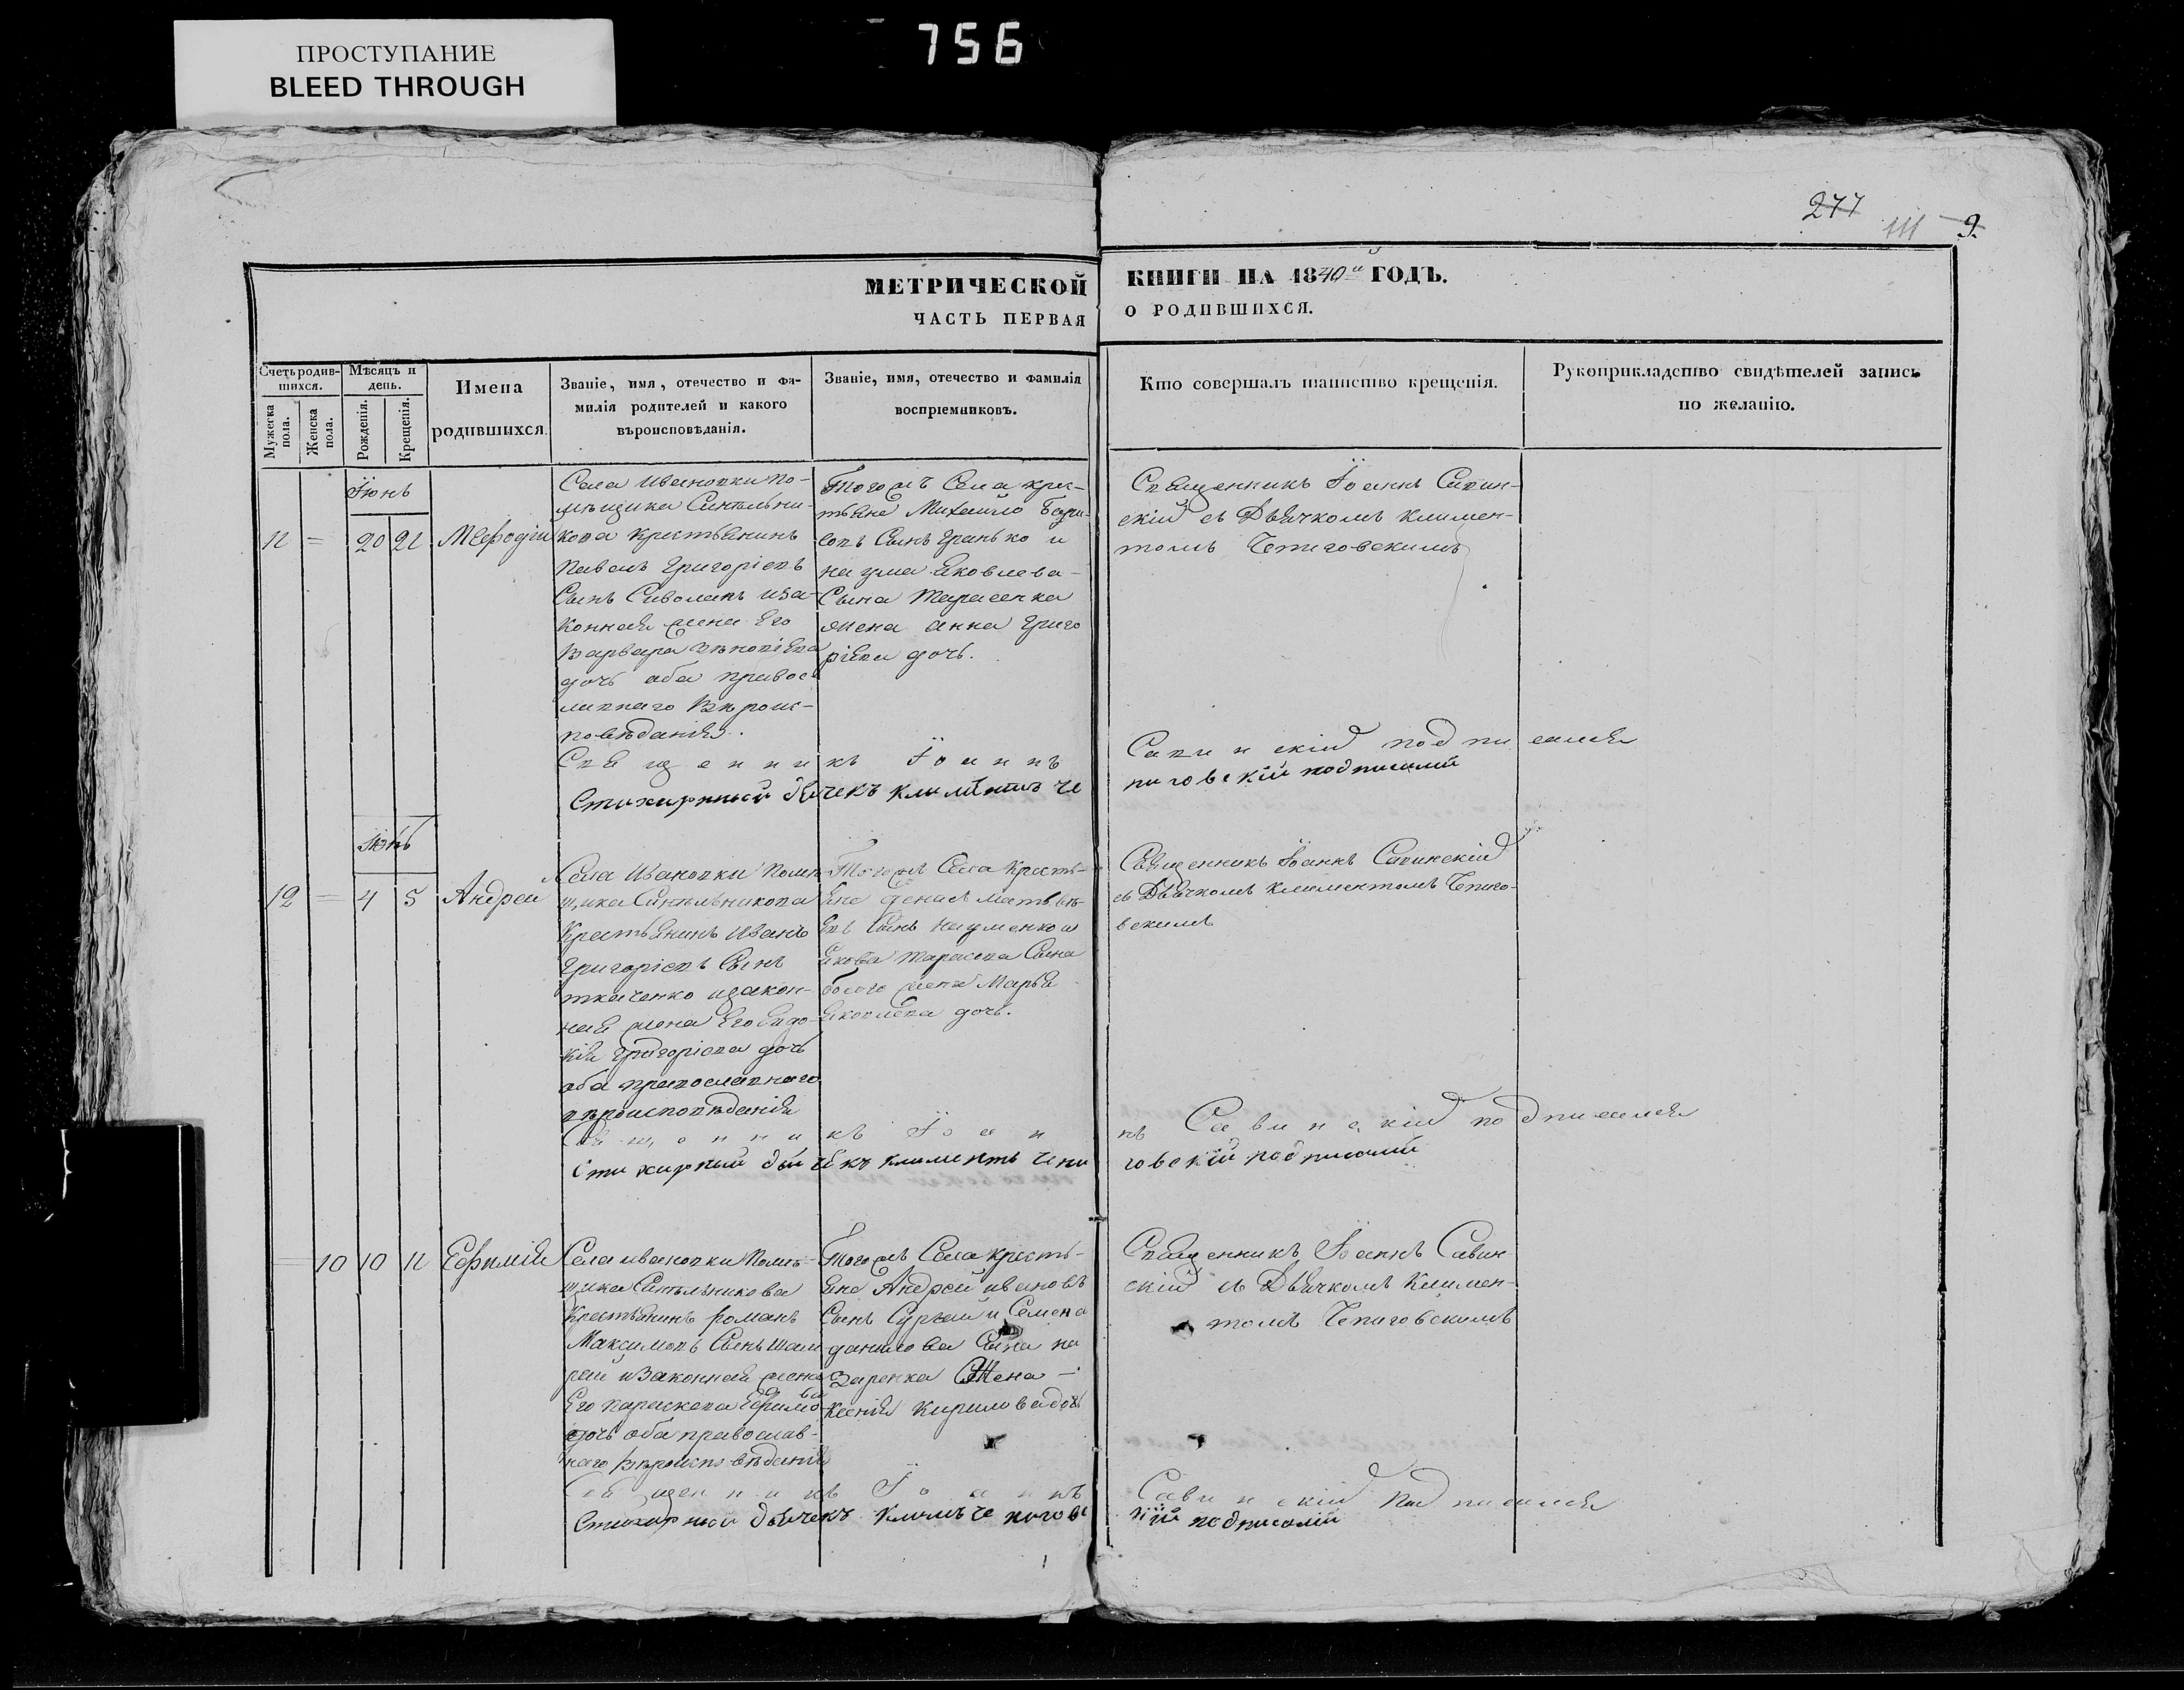 ПРОСТУПАНИЕ
BLEED THROUGH
756
277
111
9.
МЕТРИЧЕСКОЙ КНИГИ НА 1840й ГОДЪ.
ЧАСТЬ ПЕРВАЯ О РОДИВШИХСЯ.
Счетъ родив-
шихся.
Мужеска пола.
Женска пола.
Мѣсяцъ и
день.
Рожденія.
Крещенія.
Имена
родившихся.
Званіе, имя, отечество и фа-
милія родителей и какого
вѣроисповѣданія.
Званіе, имя, отечество и фамилія
воспріемниковъ.
Кто совершалъ таинство крещенія.
Рукоприкладство свидѣтелей записи
по желанію.
Їюнь
11 = 20 21 Мефодiи
Села Ивановки По-
мѣщика Синельни-
кова Крестьянинъ
Павелъ Григоріевъ
Сынъ Сиволапъ иза-
конная жена Его
Варвара
дочь оба правос
лавнаго Вѣроис-
повѣданія.
Тогожъ Села крес-
тьяне Михайло
Сынъ Гранько и
наума Яковлева
Сына Тарасенка
жена анна Григо
ріева дочь.
Священникъ Їоаннъ Савин-
скій съ Дьячкомъ климен-
томъ Чепиговскимъ
Священникъ Їоаннъ Савинскій подписался
Стихирный дьячекъ климентъ че пиговскій подписалси
12 = 4 5 Андреи
Села Ивановки Поме
щика Синельникова
Крестьянинъ Иванъ
Григоріевъ Сынъ
ткаченко изакон-
ная жена Его Евдо-
кія Григоріева дочь
оба православнаго
вѣроисповѣданія
Тогожъ Села Кресть-
яне Матвѣ-
евъ Сынъ Науменко и
Якова Тарасова Сына
босого жена Марья
Яковлева дочь.
Священникъ Їоаннъ Савинскій
съ Дьячкомъ Климентомъ Чепиго-
вскимъ
Священникъ Їоаннъ Савинскій подписался
Стихирный дьячекъ климентъ чепиговскій подписалси
= 10 10 11 Ефимія
Села ивановки Помѣ-
щика Синельникова
Крестьянинъ романъ
Максимовъ Сынъ шам
рай и законная жена
Его параскева Ефимова
дочь оба православ-
наго вѣроисповѣданія
Тогожъ Села кресть-
яне Андрей ивановъ
Сынъ и Семена
данилова Сына на
заренка Жена
Ксенія Кирилова дочь
Священникъ Їоаннъ Савин
скій съ Дьячкомъ Климен-
томъ Чепиговскимъ
Священникъ Їоаннъ Савинскій подписался
Стихирный дьячекъ климъ чепиговскій подписалси